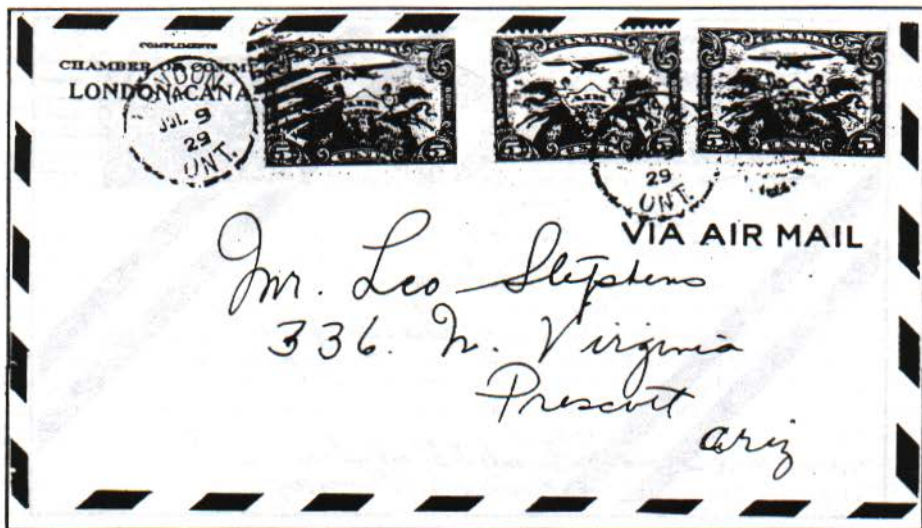 COMPLIMENTS
CHAMBER OF COMM
LONDON, CANA
LONDON
JUL 9
29
ONT.
CANADA
5 CENTS 5
CANADA
5 CENTS 5
CANADA
5 CENTS 5
29
ONT.
VIA AIR MAIL
Mr. Leo Stephens
336. N. Virginia
Prescott
Ariz